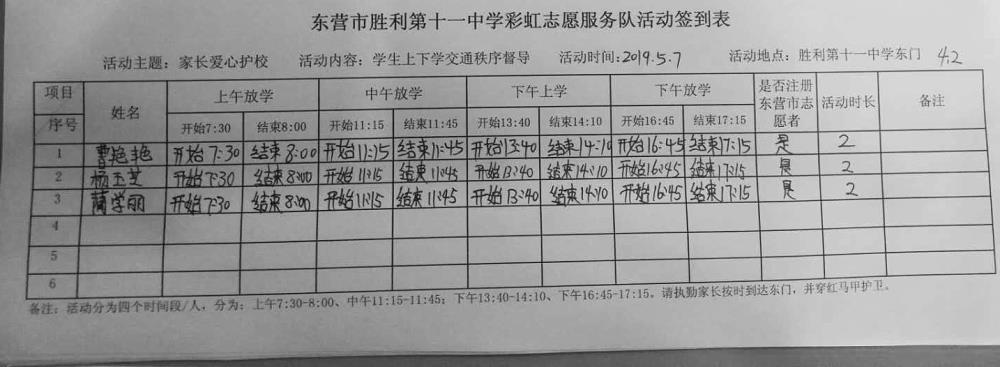 东营市胜利第十一中学彩虹志愿服务队活动签到表
活动主题：家长爱心护校 活动内容：学生上下学交通秩序督导 活动时间:2019.5.7 活动地点：胜利第十一中学东门 4.2
项目 序号 姓名 上午放学 中午放学 下午上学 下午放学 是否注册东营市志愿者 活动时长 备注
开始7:30 结束8:00 开始11:15 结束11:45 开始13:40 结束14:10 开始16:45 结束17:15
1 曹艳艳 开始7:30 结束8:00 开始11:15 结束11:45 开始13:40 结束14:10 开始16:45 结束17:15 是 2
2 杨玉芝 开始7:30 结束8:00 开始11:15 结束11:45 开始13:40 结束14:10 开始16:45 结束17:15 是 2
3 蔺学丽 开始7:30 结束8:00 开始11:15 结束11:45 开始13:40 结束14:10 开始16:45 结束17:15 是 2
4
5
6
备注：活动分为四个时间段/人，分为：上午7:30-8:00、中午11:15-11:45；下午13:40-14:10、下午16:45-17:15。请执勤家长按时到达东门，并穿红马甲护卫。